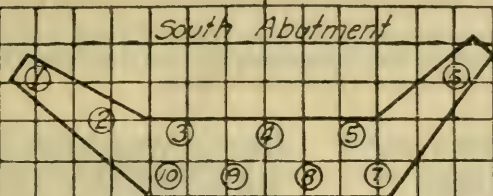 South Abutment
1
6
2
3
4
5
10
9
8
7